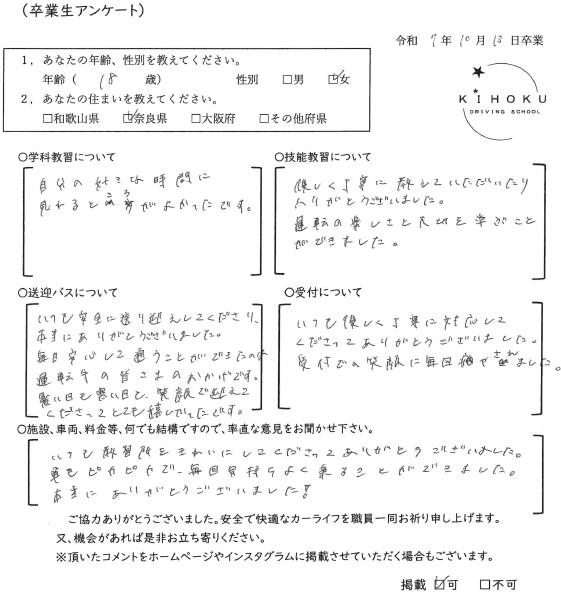 (卒業生アンケート)
令和 7年 10月 13日卒業
1，あなたの年齢、性別を教えてください。
年齢（ 18 歳） 性別 □男 ☑女
2，あなたの住まいを教えてください。
□和歌山県 ☑奈良県 □大阪府 □その他府県
KiHOKU
DRIVING SCHOOL
○学科教習について
自分の好きな時間に
見れるところがよかったです。
○技能教習について
優しく丁寧に教えていただいたり
ありがとうございました。
運転の楽しさと大切を学ぶこと
ができました。
○送迎バスについて
いつも安全に送り迎えしてくださり、
本当にありがとうございました。
毎日安心して通うことができたのは
運転手の皆さまのおかげです。
暑い日も寒い日も、笑顔で迎えて
くださってとても嬉しかったです。
○受付について
いつも優しく丁寧に対応して
くださってありがとうございました。
受付での笑顔に毎回癒やされました。
○施設、車両、料金等、何でも結構ですので、率直な意見をお聞かせ下さい。
いつも教習所をきれいにしてくださってありがとうございました。
車もピカピカで、毎回気持ちよく乗ることができました。
本当にありがとうございました！
ご協力ありがとうございました。安全で快適なカーライフを職員一同お祈り申し上げます。
又、機会があれば是非お立ち寄りください。
※頂いたコメントをホームページやインスタグラムに掲載させていただく場合もございます。
掲載 ☑可 □不可